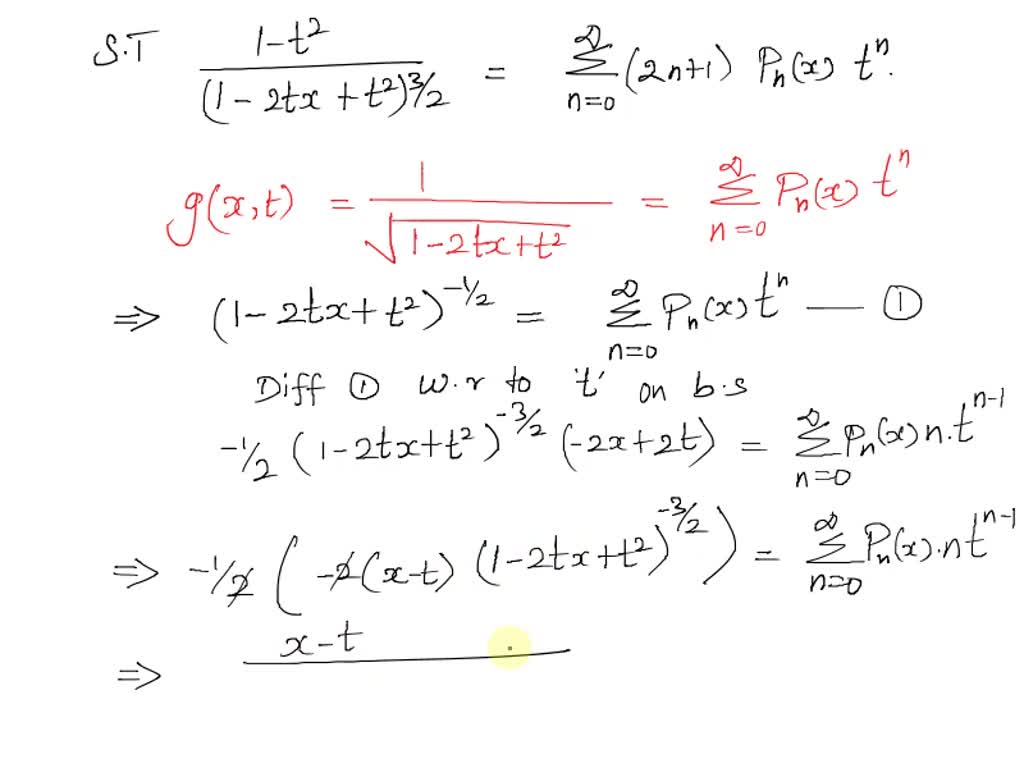 S.T (1-t²)/(1-2tx+t²)^{3/2} = ∑_{n=0}^{∞} (2n+1) Pₙ(x) tⁿ.
g(x,t) = 1/√(1-2tx+t²) = ∑_{n=0}^{∞} Pₙ(x) tⁿ
⇒ (1-2tx+t²)^{-1/2} = ∑_{n=0}^{∞} Pₙ(x) tⁿ — ①
Diff ① w.r to 't' on b.s
-1/2 (1-2tx+t²)^{-3/2} (-2x+2t) = ∑_{n=0}^{∞} Pₙ(x) n.t^{n-1}
⇒ -1/2 (-2(x-t) (1-2tx+t²)^{-3/2}) = ∑_{n=0}^{∞} Pₙ(x).n t^{n-1}
⇒ x-t